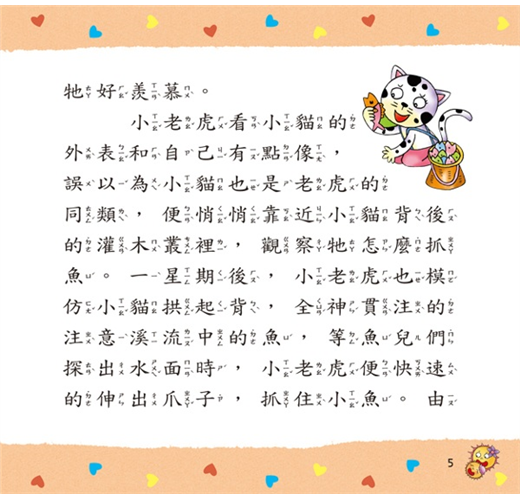 牠好羨慕。
小老虎看小貓的
外表和自己有點像，
誤以為小貓也是老虎的
同類，便悄悄靠近小貓背後
的灌木叢裡，觀察牠怎麼抓
魚。一星期後，小老虎也模
仿小貓拱起背，全神貫注的
注意溪流中的魚，等魚兒們
探出水面時，小老虎便快速
的伸出爪子，抓住小魚。由
5